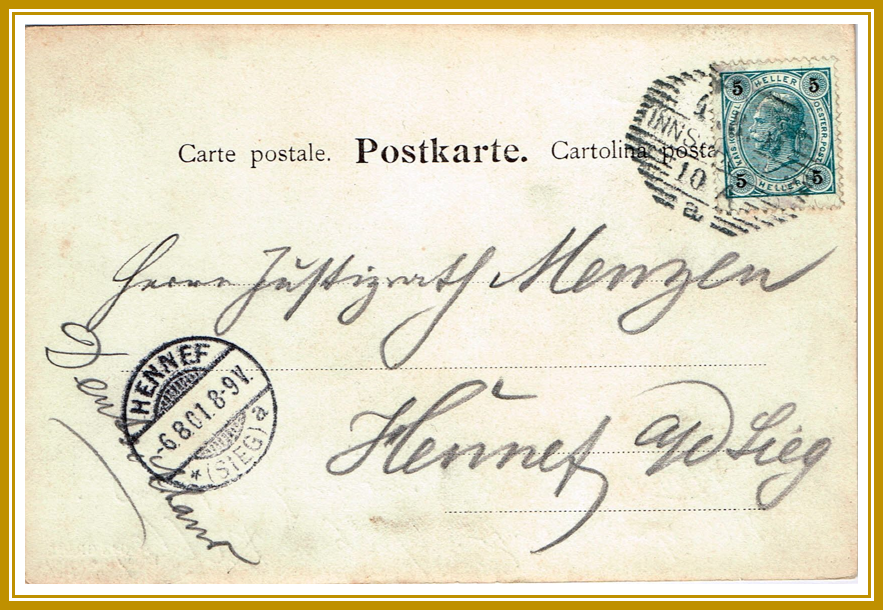 Carte postale. Postkarte. Cartolina posta
INNS
10
a
5 HELLER 5
KAIS. KÖNIGL. OESTERR. POST
5 HELLER 5
Herrn Justizrath Menzen
Hennef a/d Sieg
HENNEF
-6.8.01.8-9V.
* (SIEG) a